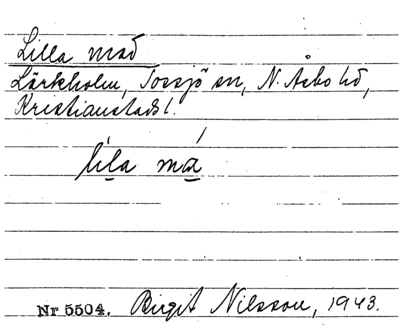 Lilla mad
Lärkholm, Tossjö sn, N. Åsbo hd,
Kristianstads l.
lila ma
Nr 5504. Birgit Nilsson, 1943.